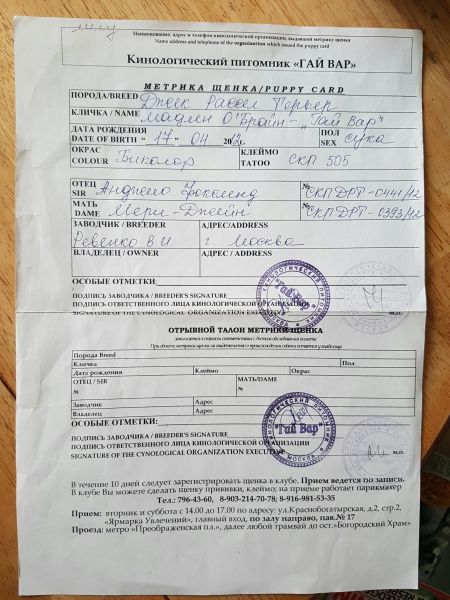 Наименование, адрес и телефон кинологической организации, выдавшей метрику щенка
Name address and telephone of the organization which issued the puppy card
Кинологический питомник «ГАЙ ВАР»
МЕТРИКА ЩЕНКА/PUPPY CARD
ПОРОДА/BREED Джек Рассел Терьер
КЛИЧКА / NAME Мадлен О'Брайн- "Гай Вар"
ДАТА РОЖДЕНИЯ ПОЛ
DATE OF BIRTH "17" 04 2012г SEX сука
ОКРАС КЛЕЙМО
COLOUR Биколор TATOO СКП 505
ОТЕЦ №
SIR Анджело Фоколенд СКП ДРТ-0441/12
МАТЬ №
DAME Мери-Джейн СКП ДРТ-0393/12
ЗАВОДЧИК / BREEDER АДРЕС/ADDRESS
Ревенко В И г. Москва
ВЛАДЕЛЕЦ / OWNER АДРЕС / ADDRESS
ОСОБЫЕ ОТМЕТКИ:
ПОДПИСЬ ЗАВОДЧИКА / BREEDER'S SIGNATURE
ПОДПИСЬ ОТВЕТСТВЕННОГО ЛИЦА КИНОЛОГИЧЕСКОЙ ОРГАНИЗАЦИИ
SIGNATURE OF THE CYNOLOGICAL ORGANIZATION EXECUTIVE М.П.
КИНОЛОГИЧЕСКИЙ ПИТОМНИК "Гай Вар" МОСКВА
ОТРЫВНОЙ ТАЛОН МЕТРИКИ ЩЕНКА
заполняется в строгом соответствии с Актом обследования помета
Приобмене метрики щенка на свидетельство происхождения собаки остается у владельца
Порода Breed
Кличка Пол
Дата рождения Клеймо Окрас
ОТЕЦ / SIR МАТЬ/DAME
№ №
Заводчик Адрес
Владелец Адрес
ОСОБЫЕ ОТМЕТКИ:
ПОДПИСЬ ЗАВОДЧИКА / BREEDER'S SIGNATURE
ПОДПИСЬ ОТВЕТСТВЕННОГО ЛИЦА КИНОЛОГИЧЕСКОЙ ОРГАНИЗАЦИИ
SIGNATURE OF THE CYNOLOGICAL ORGANIZATION EXECUTIVE М.П.
КИНОЛОГИЧЕСКИЙ ПИТОМНИК "Гай Вар" МОСКВА
В течение 10 дней следует зарегистрировать щенка в клубе. Прием ведется по записи.
В клубе Вы можете сделать щенку прививки, клеймо; на приеме работает парикмахер
Тел.: 796-43-60, 8-903-214-70-78; 8-916-981-53-35
Прием: вторник и суббота с 14.00 до 17.00 по адресу: ул.Краснобогатырская, д.2, стр.2,
«Ярмарка Увлечений», главный вход, по залу направо, пав.№ 17
Проезд: метро «Преображенская пл.», далее любой трамвай до ост.«Богородский Храм»